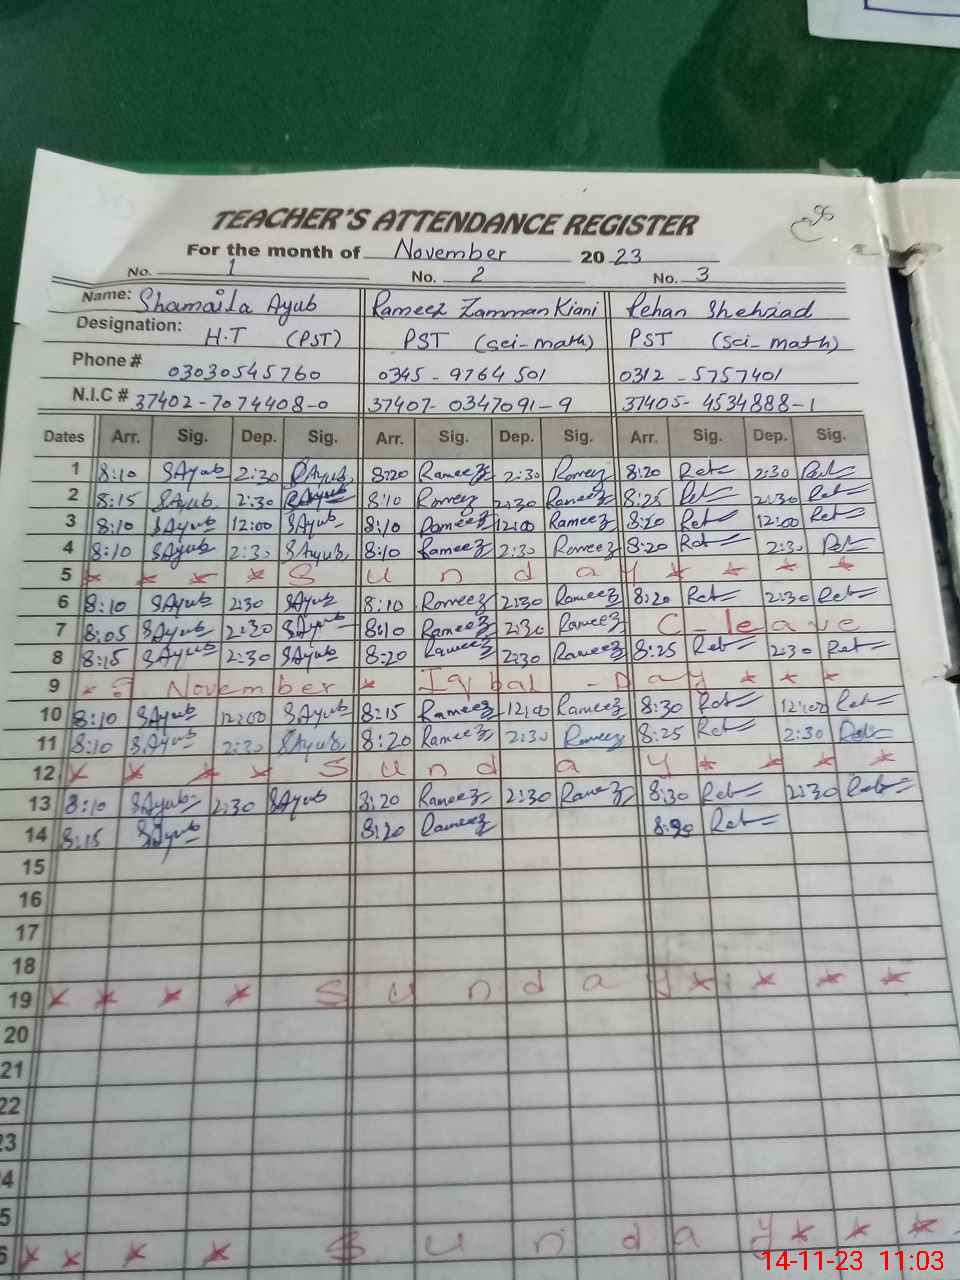 TEACHER'S ATTENDANCE REGISTER
For the month of November 20 23
No. 1 No. 2 No. 3
Name: Shamaila Ayub Rameez Zamman Kiani Rehan Shehzad
Designation: H.T (PST) PST (sci-math) PST (sci-math)
Phone # 03030545760 0345-9764501 0312-5757401
N.I.C # 37402-7074408-0 37407-0347091-9 37405-4534888-1
Dates Arr. Sig. Dep. Sig. Arr. Sig. Dep. Sig. Arr. Sig. Dep. Sig.
1 8:10 SAyub 2:30 SAyub 8:20 Rameez 2:30 Rameez 8:20 2:30
2 8:15 SAyub 2:30 SAyub 8:10 Rameez 2:30 Rameez 8:25 2:30
3 8:10 SAyub 12:00 SAyub 8:10 Rameez 12:00 Rameez 8:20 12:00
4 8:10 SAyub 2:30 SAyub 8:10 Rameez 2:30 Rameez 8:20 2:30
5 * * * * S u n d a y * * * *
6 8:10 SAyub 2:30 SAyub 8:10 Rameez 2:30 Rameez 8:20 2:30
7 8:05 SAyub 2:30 SAyub 8:10 Rameez 2:30 Rameez C-leave
8 8:15 SAyub 2:30 SAyub 8:20 Rameez 2:30 Rameez 8:25 2:30
9 * 9 November * Iqbal - Day * * *
10 8:10 SAyub 12:00 SAyub 8:15 Rameez 12:00 Rameez 8:30 12:00
11 8:10 SAyub 2:30 SAyub 8:20 Rameez 2:30 Rameez 8:25 2:30
12 * * * * S u n d a y * * * *
13 8:10 SAyub 2:30 SAyub 8:20 Rameez 2:30 Rameez 8:30 2:30
14 8:15 SAyub 8:20 Rameez
15
16
17
18
19 * * * * S u n d a y * * * *
20
21
22
23
4
5
6 * * * * S u n d a y * * *
14-11-23 11:03